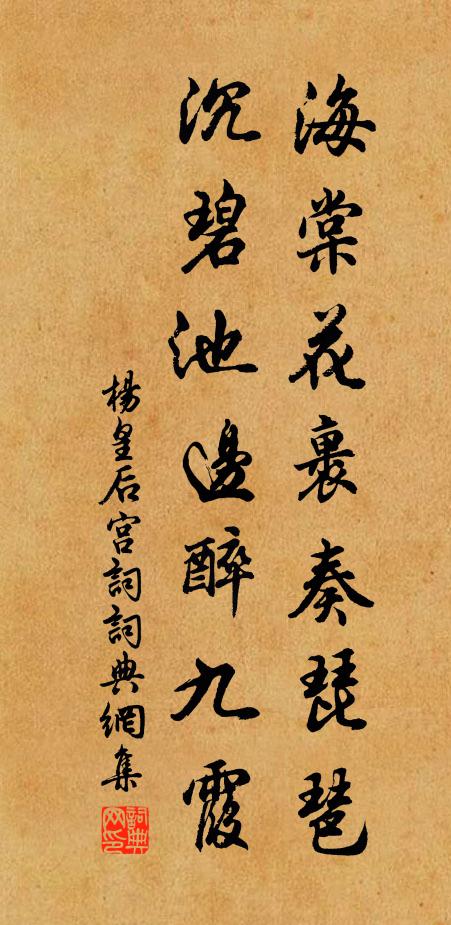 海棠花裏奏琵琶
沉碧池邊醉九霞
楊皇后宮詞詞典網集
詞典网印